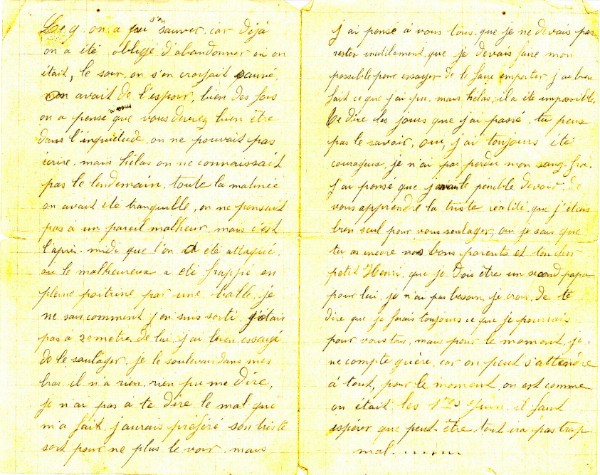 Le 9, on a pu s'en sauver, car déjà
on a été obligé d'abandonner où on
était, le soir, on s'en croyait sauvé,
on avait de l'espoir, bien des fois
on a pensé que vous devez bien être
dans l'inquiétude, on ne pouvait pas
écrire, mais hélas on ne connaissait
pas le lendemain, toute la matinée
on avait été tranquille, on ne pensait
pas a un pareil malheur, mais c'est
l'après-midi que l'on a été attaqué,
ou le malheureux a été frappé en
pleine poitrine par une balle, je
ne sais comment j'en suis sorti j'étais
pas a 2 metres de lui, j'ai bien essayé
de le soulager, je le soutenais dans mes
bras il n'a rien, rien pu me dire,
je n'ai pas a te dire le mal que
m'a fait, j'aurais préféré son triste
sort pour ne plus le voir, mais
j'ai pensé a vous tous, que je ne devais pas
rester inutilement, que je devais faire mon
possible pour essayer de le faire emporter j'ai bien
fait ce que j'ai pu, mais hélas, il a été impossible,
te dire les jours que j'ai passé, tu peux
pas le savoir, oui, j'ai toujours été
courageux, je n'ai pas perdu mon sang froi
j'ai pensé que j'avais le penible devoir de
vous apprendre la triste réalité, que j'étais
bien seul pour vous soulager, on je sais que
tu as encore nos bons parents et ton cher
petit Henri, que je dois être un second papa
pour lui, je n'ai pas besoin, je crois, de te
dire que je ferais toujours ce que je pourrais
pour vous tous, mais pour le moment, je
ne compte guère, car on peut s'attendre
à tout, pour le moment, on est comme
on était, les 1ers jours, il faut
espérer que peut être tout ira pas trop
mal.......